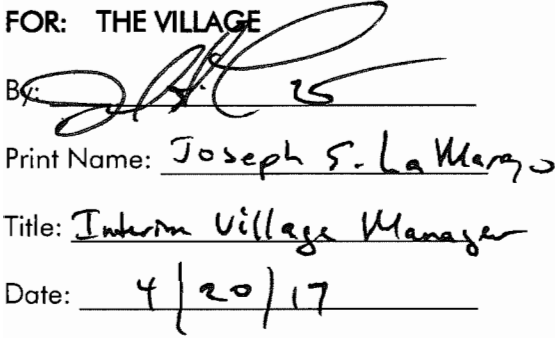 FOR: THE VILLAGE
By:
Print Name: Joseph S. La Margo
Title: Interim Village Manager
Date: 4/20/17